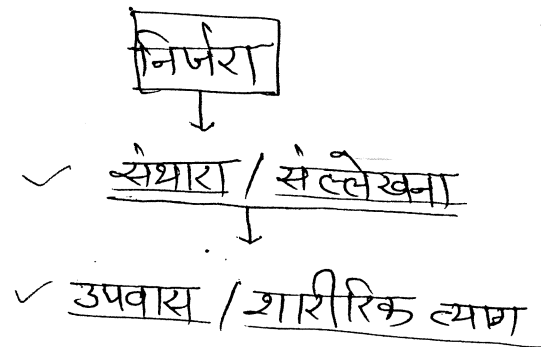 निर्जरा
संथारा / संल्लेखना
उपवास / शारीरिक त्याग